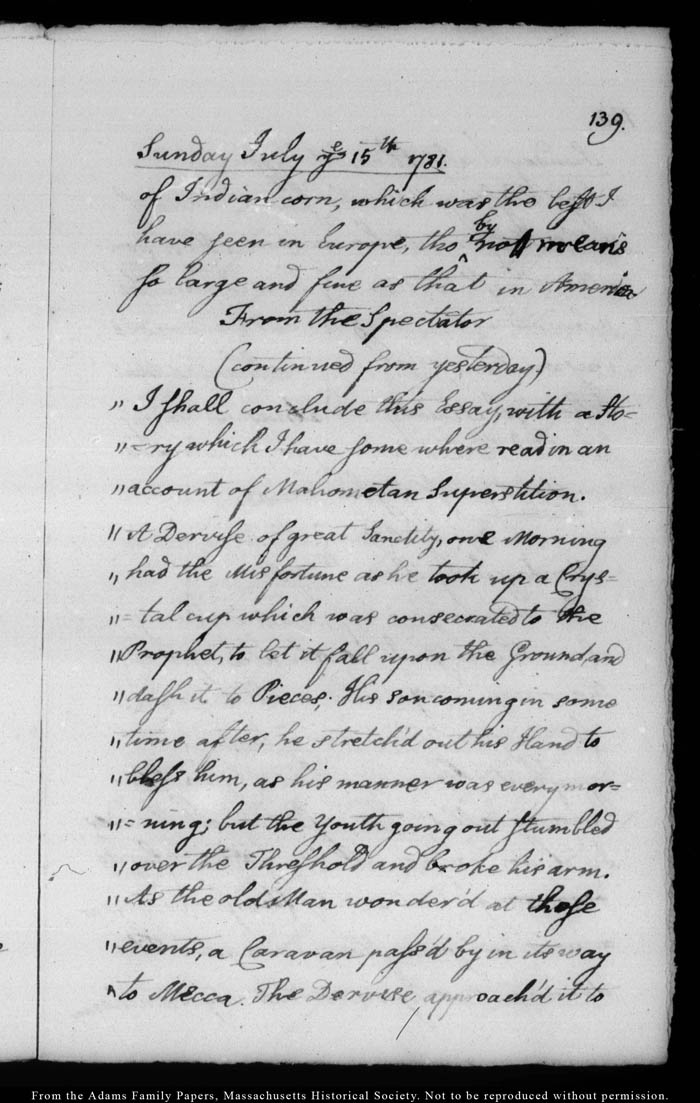 139.
Sunday July ye 15th 1781.
of Indian corn, which was the best I
have seen in Europe, tho by no means
so large and fine as that in America
From the Spectator
(continued from yesterday)
" I shall conclude this Essay, with a Sto=
" =ry which I have some where read in an
" account of Mahometan Superstition.
" A Dervise of great Sanctity, one Morning
" had the Misfortune as he took up a Crys=
" =tal cup which was consecrated to the
" Prophet, to let it fall upon the Ground, and
" dash it to Pieces. His son coming in some
" time after, he stretch'd out his Hand to
" bless him, as his manner was every mor=
" =ning; but the Youth going out stumbled
" over the Threshold and broke his arm.
" As the old Man wonder'd at these
" events, a Caravan pass'd by in its way
" to Mecca. The Dervise, approach'd it to
From the Adams Family Papers, Massachusetts Historical Society. Not to be reproduced without permission.